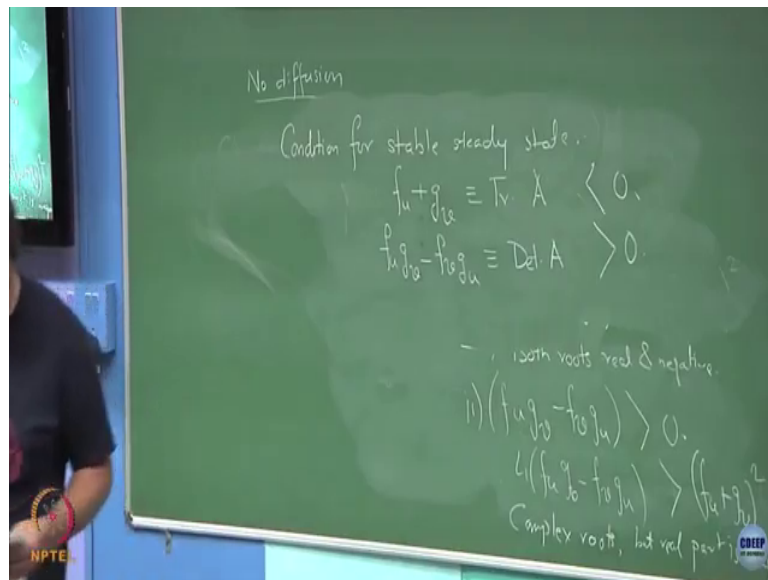 No diffusion
Condition for stable steady state.
fu + gv ≡ Tr. A < 0.
fu gv - fv gu ≡ Det. A > 0.
both roots real & negative.
ii) (fu gv - fv gu) > 0.
4(fu gv - fv gu) > (fu + gv)²
Complex roots, but real part
NPTEL
CDEEP